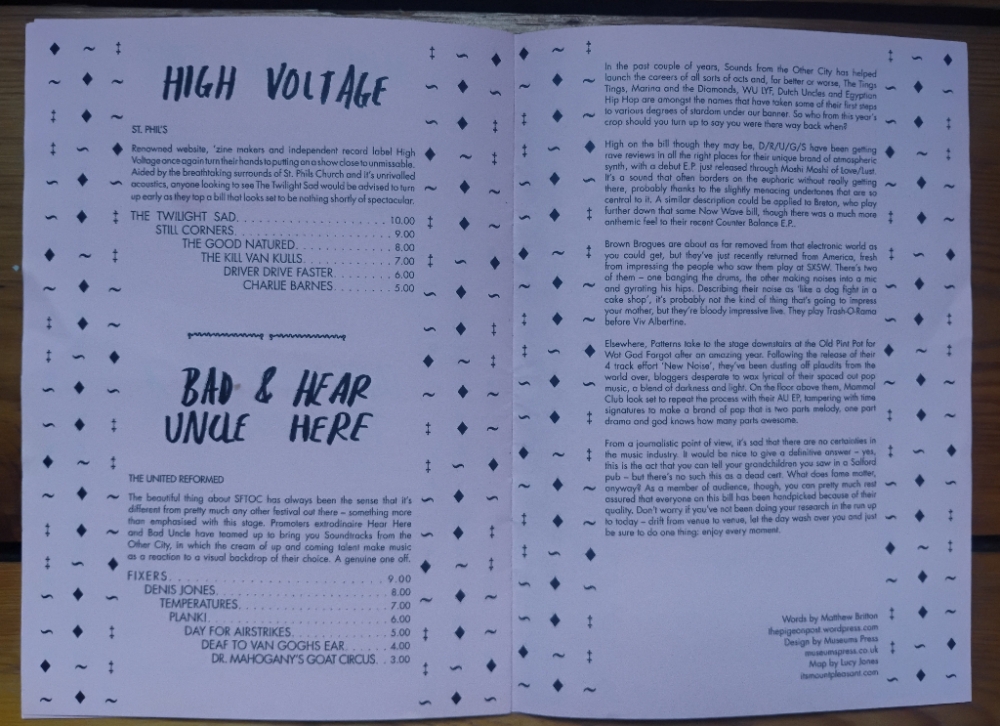 HIGH VOLTAGE
ST. PHIL'S
Renowned website, 'zine makers and independent record label High
Voltage once again turn their hands to putting on a show close to unmissable.
Aided by the breathtaking surrounds of St. Phils Church and it's unrivalled
acoustics, anyone looking to see The Twilight Sad would be advised to turn
up early as they top a bill that looks set to be nothing shortly of spectacular.
THE TWILIGHT SAD. . . . . . . . . . . . . . . . . . . . 10.00
STILL CORNERS. . . . . . . . . . . . . . . . . . . . 9.00
THE GOOD NATURED. . . . . . . . . . . . . . . 8.00
THE KILL VAN KULLS. . . . . . . . . . . . . . 7.00
DRIVER DRIVE FASTER. . . . . . . . . . 6.00
CHARLIE BARNES. . . . . . . . . . 5.00
BAD & HEAR
UNCLE HERE
THE UNITED REFORMED
The beautiful thing about SFTOC has always been the sense that it's
different from pretty much any other festival out there – something more
than emphasised with this stage. Promoters extrodinaire Hear Here
and Bad Uncle have teamed up to bring you Soundtracks from the
Other City, in which the cream of up and coming talent make music
as a reaction to a visual backdrop of their choice. A genuine one off.
FIXERS. . . . . . . . . . . . . . . . . . . . . . . . . . 9.00
DENIS JONES. . . . . . . . . . . . . . . . . . . . . 8.00
TEMPERATURES. . . . . . . . . . . . . . . . . . 7.00
PLANK!. . . . . . . . . . . . . . . . . . . . . 6.00
DAY FOR AIRSTRIKES. . . . . . . . . . . . 5.00
DEAF TO VAN GOGHS EAR. . . . . . 4.00
DR. MAHOGANY'S GOAT CIRCUS. . 3.00
In the past couple of years, Sounds from the Other City has helped
launch the careers of all sorts of acts and, for better or worse, The Tings
Tings, Marina and the Diamonds, WU LYF, Dutch Uncles and Egyptian
Hip Hop are amongst the names that have taken some of their first steps
to various degrees of stardom under our banner. So who from this year's
crop should you turn up to say you were there way back when?
High on the bill though they may be, D/R/U/G/S have been getting
rave reviews in all the right places for their unique brand of atmospheric
synth, with a debut E.P. just released through Moshi Moshi of Love/Lust.
It's a sound that often borders on the euphoric without really getting
there, probably thanks to the slightly menacing undertones that are so
central to it. A similar description could be applied to Breton, who play
further down that same Now Wave bill, though there was a much more
anthemic feel to their recent Counter Balance E.P..
Brown Brogues are about as far removed from that electronic world as
you could get, but they've just recently returned from America, fresh
from impressing the people who saw them play at SXSW. There's two
of them – one banging the drums, the other making noises into a mic
and gyrating his hips. Describing their noise as 'like a dog fight in a
cake shop', it's probably not the kind of thing that's going to impress
your mother, but they're bloody impressive live. They play Trash-O-Rama
before Viv Albertine.
Elsewhere, Patterns take to the stage downstairs at the Old Pint Pot for
Wot God Forgot after an amazing year. Following the release of their
4 track effort 'New Noise', they've been dusting off plaudits from the
world over, bloggers desperate to wax lyrical of their spaced out pop
music, a blend of darkness and light. On the floor above them, Mammal
Club look set to repeat the process with their AU EP, tampering with time
signatures to make a brand of pop that is two parts melody, one part
drama and god knows how many parts awesome.
From a journalistic point of view, it's sad that there are no certainties in
the music industry. It would be nice to give a definitive answer – yes,
this is the act that you can tell your grandchildren you saw in a Salford
pub – but there's no such this as a dead cert. What does fame matter,
anyway? As a member of audience, though, you can pretty much rest
assured that everyone on this bill has been handpicked because of their
quality. Don't worry if you've not been doing your research in the run up
to today – drift from venue to venue, let the day wash over you and just
be sure to do one thing: enjoy every moment.
Words by Matthew Britton
thepigeonpost.wordpress.com
Design by Museums Press
museumspress.co.uk
Map by Lucy Jones
itsmountpleasant.com